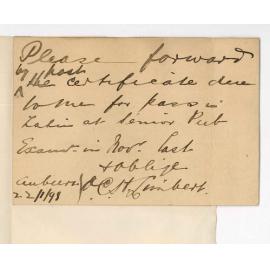 Please forward
by post
^ the certificate due
to me for pass in
Latin at Senior Pub
Exam in Nov. last
& oblige
A. C. H. Limbert.
22/1/98